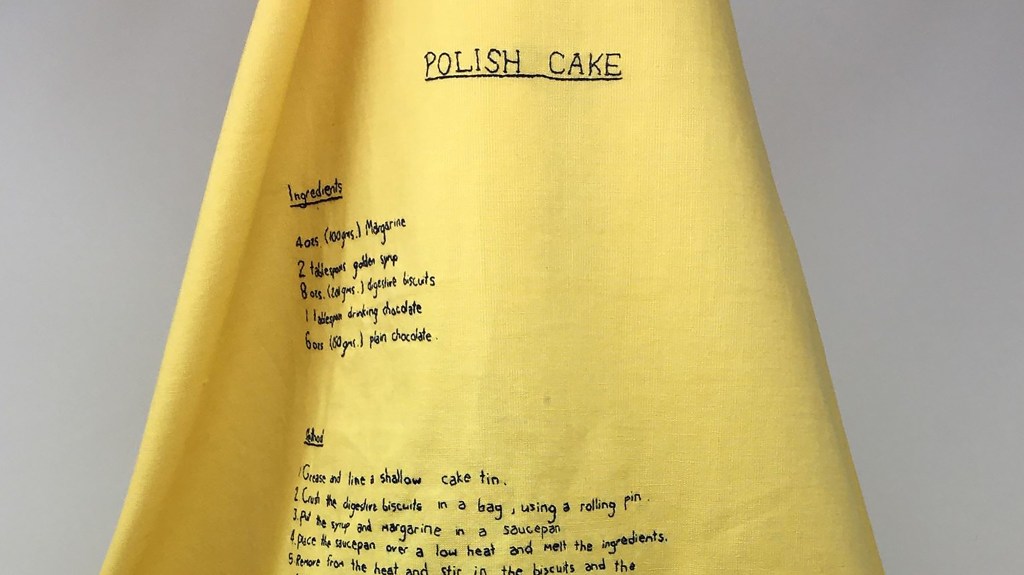 POLISH CAKE
Ingredients
4 ozs (100gms.) Margarine
2 tablespoons golden syrup
8 ozs. (201gms.) digestive biscuits
1 tablespoon drinking chocolate
6 ozs (150gms.) plain chocolate.
Method
1 Grease and line a shallow cake tin.
2. Crush the digestive biscuits in a bag, using a rolling pin.
3. Put the syrup and margarine in a saucepan
4. place the saucepan over a low heat and melt the ingredients.
5 Remove from the heat and stir in the biscuits and the